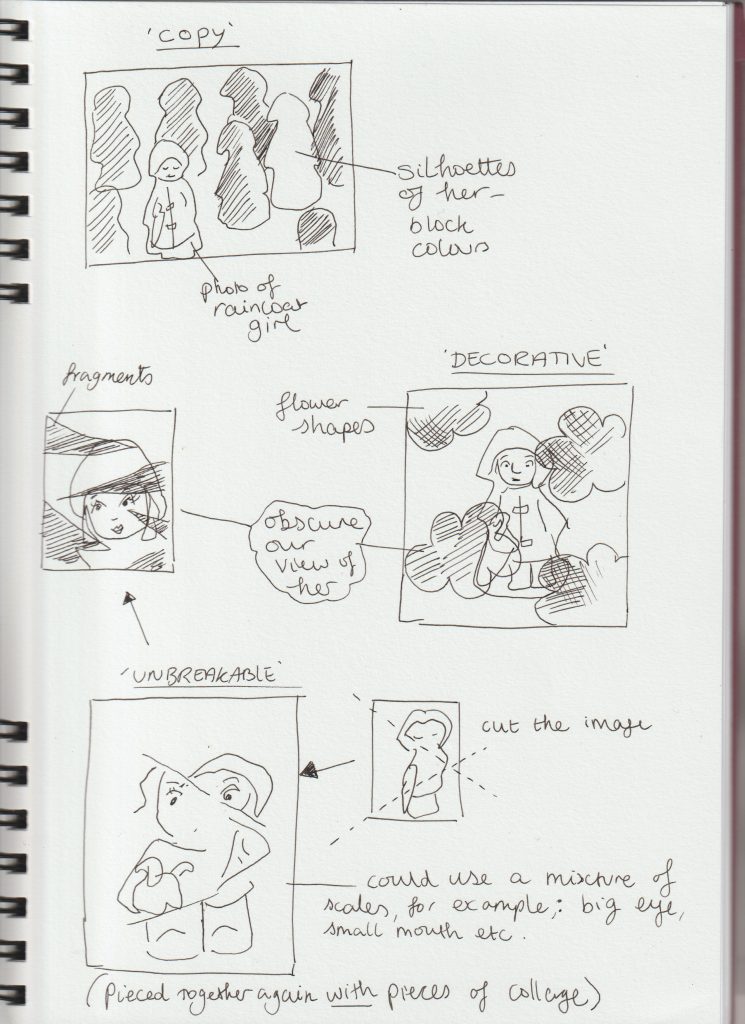 'COPY'
silhoettes
of her-
block
colours
photo of
raincoat
girl
'DECORATIVE'
fragments
flower
shapes
obscure
our
view of
her
'UNBREAKABLE'
cut the image
could use a mixture of
scales, for example,: big eye,
small mouth etc.
(Pieced together again with pieces of collage)